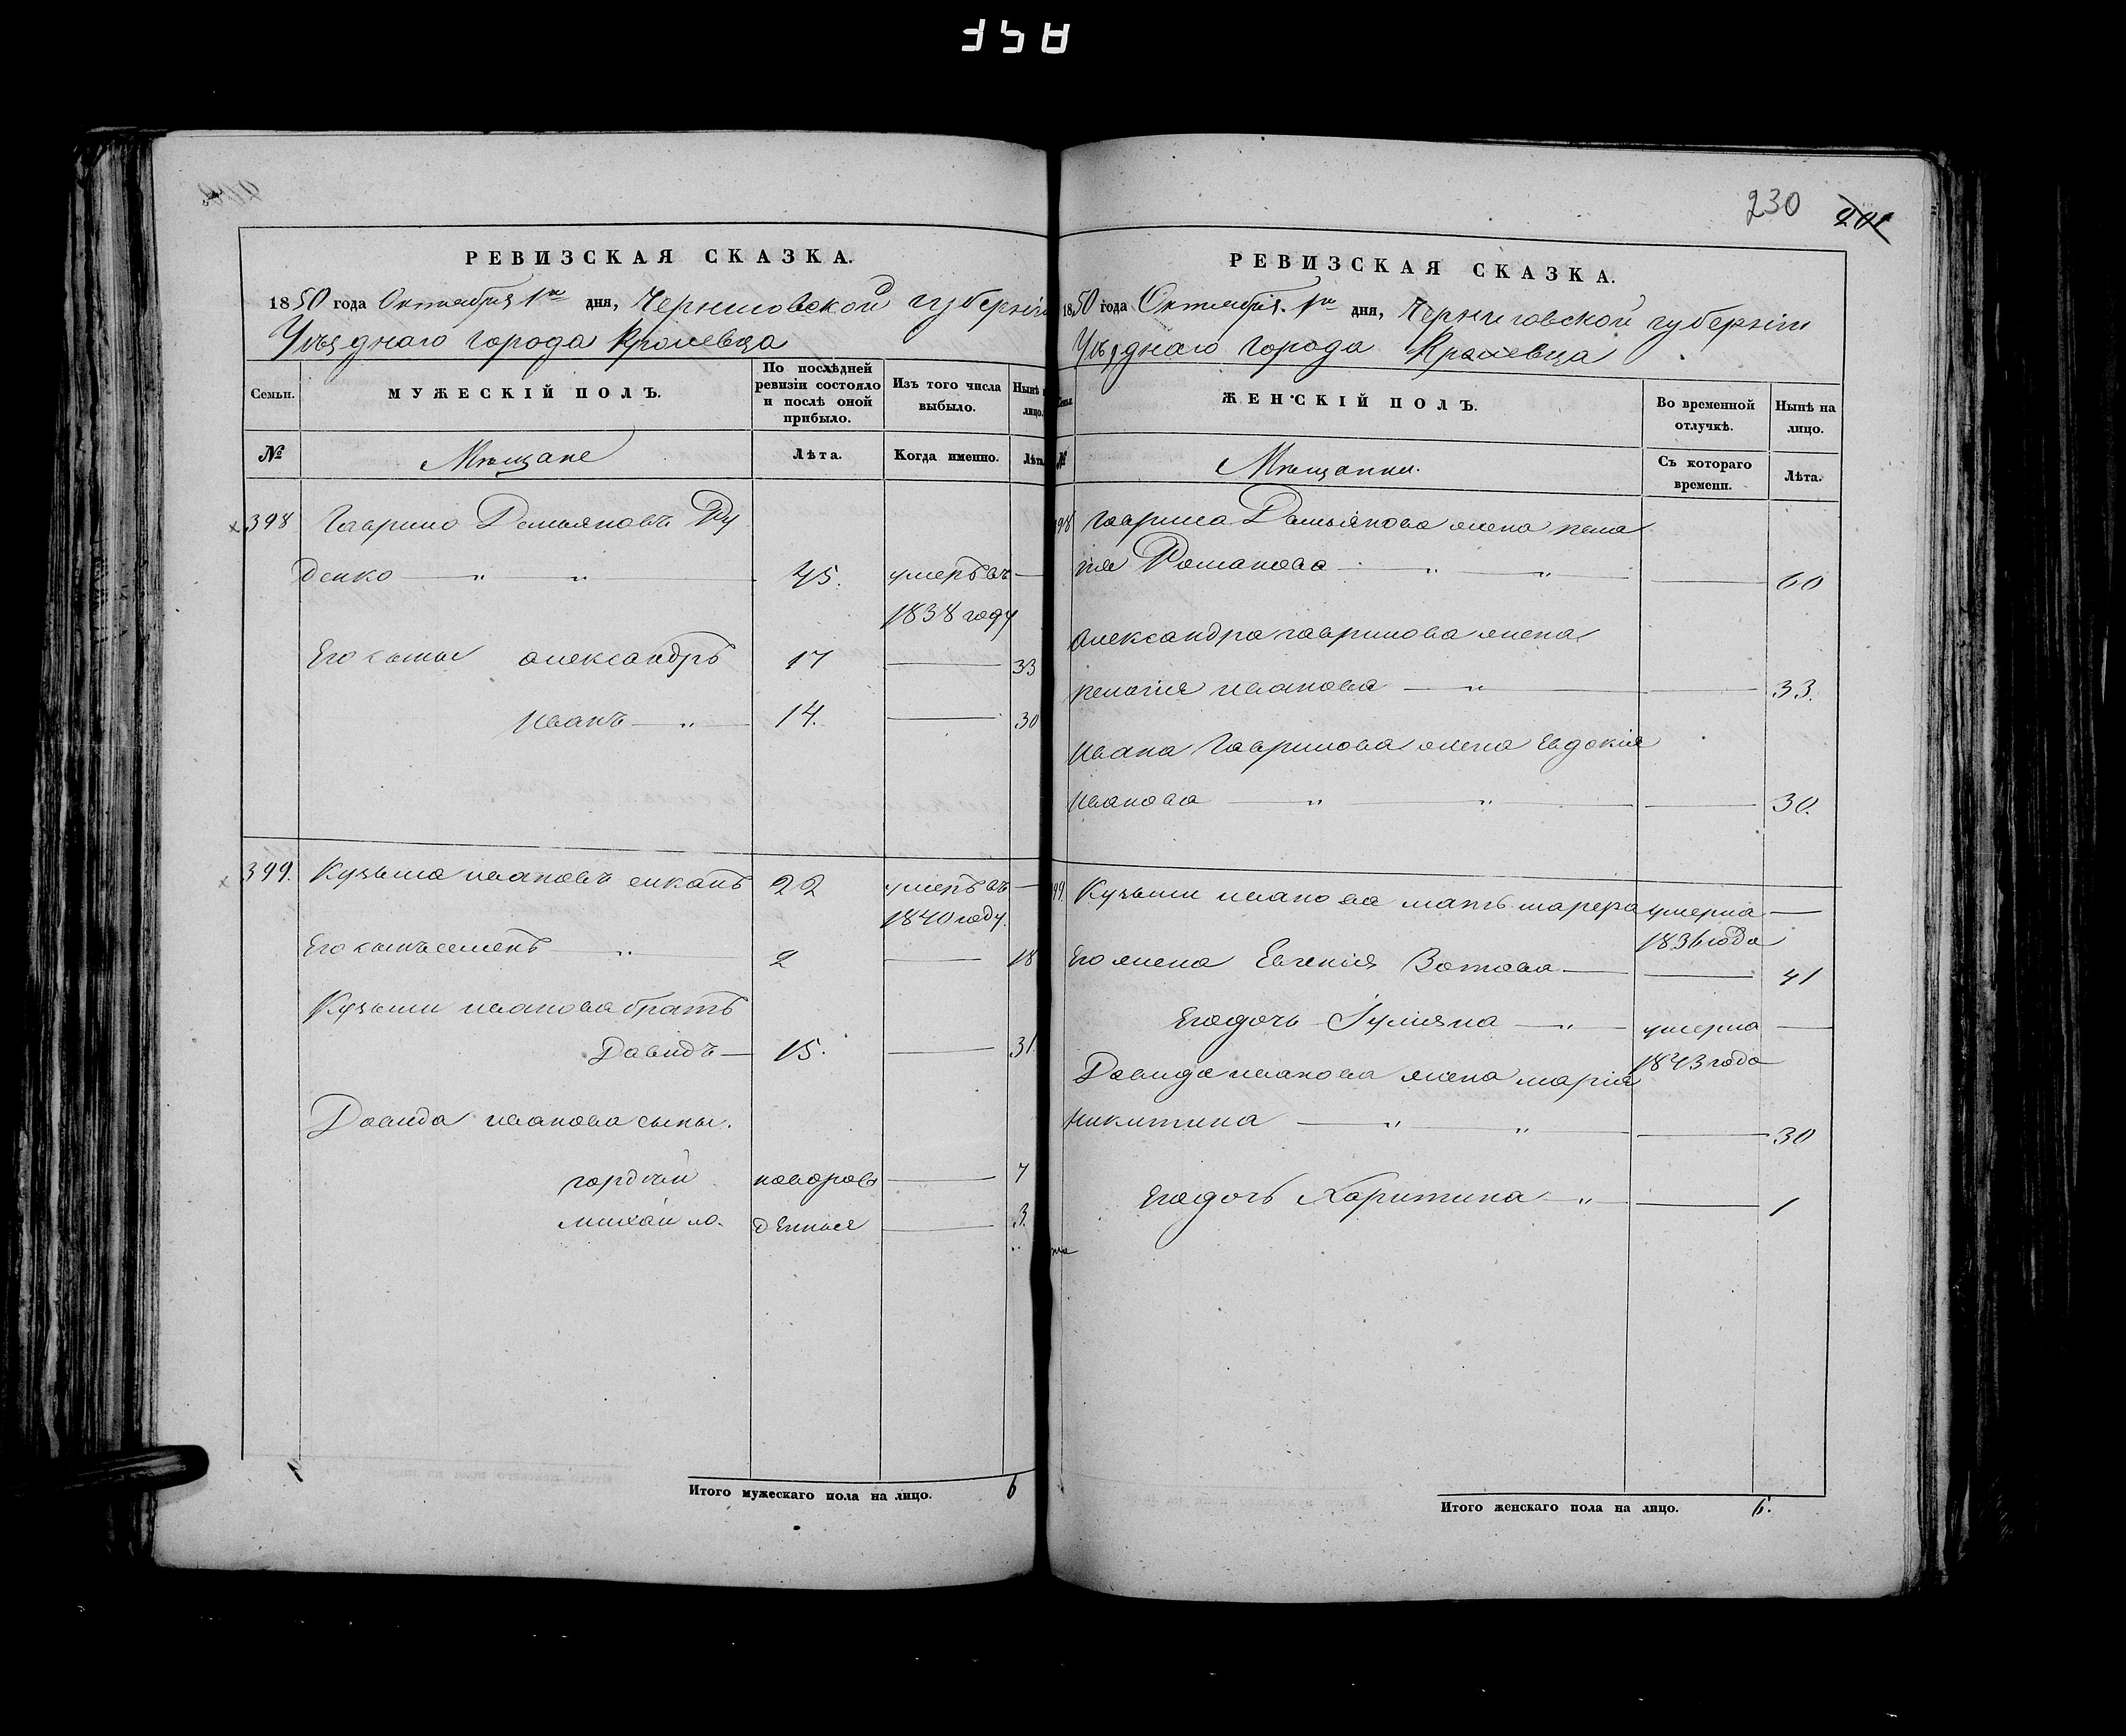 РЕВИЗСКАЯ СКАЗКА.
1850 года Октября 1го дня, Черниговской губерніи
Уѣзднаго города Кролевца
Семьи.
МУЖЕСКІЙ ПОЛЪ.
По послѣдней ревизіи состояло и послѣ оной прибыло.
Изъ того числа выбыло.
Нынѣ лицо.
№
Мѣщане
Лѣта.
Когда именно.
Лѣта
398 Гаврило Демьяновъ Ру
денко 45. умеръ въ
1838 году
Его сыны александръ 17 33
Иванъ 14. 30
399. Кузьма ивановъ 22 умеръ въ
1840 году.
Его сынъ семенъ 2 18
Кузьмы иванова братъ
Давидъ 15. 31
Давида иванова сыны.
гордѣй новоро 7
михайло. денные 3.
Итого мужескаго пола на лицо. 6
230
201
РЕВИЗСКАЯ СКАЗКА.
1850 года Октября 1го дня, Черниговской губерніи
Уѣзднаго города Кролевца
ЖЕНСКІЙ ПОЛЪ.
Во временной отлучкѣ.
Нынѣ на лицо.
№
Мѣщанки.
Съ котораго времени.
Лѣта.
98 гаврила Демьянова жена пела
гія Романова 60
александра гаврилова жена
пелагія иванова 33.
ивана гаврилова жена Евдокія
иванова 30.
99. Кузьмы иванова мать умерла
1836 года
Его жена Евгенія 41
Его дочь Іуліяна умерла
1843 года
Давида иванова жена марія
никитина 30
Его дочь Харитина 1
Итого женскаго пола на лицо. 6.